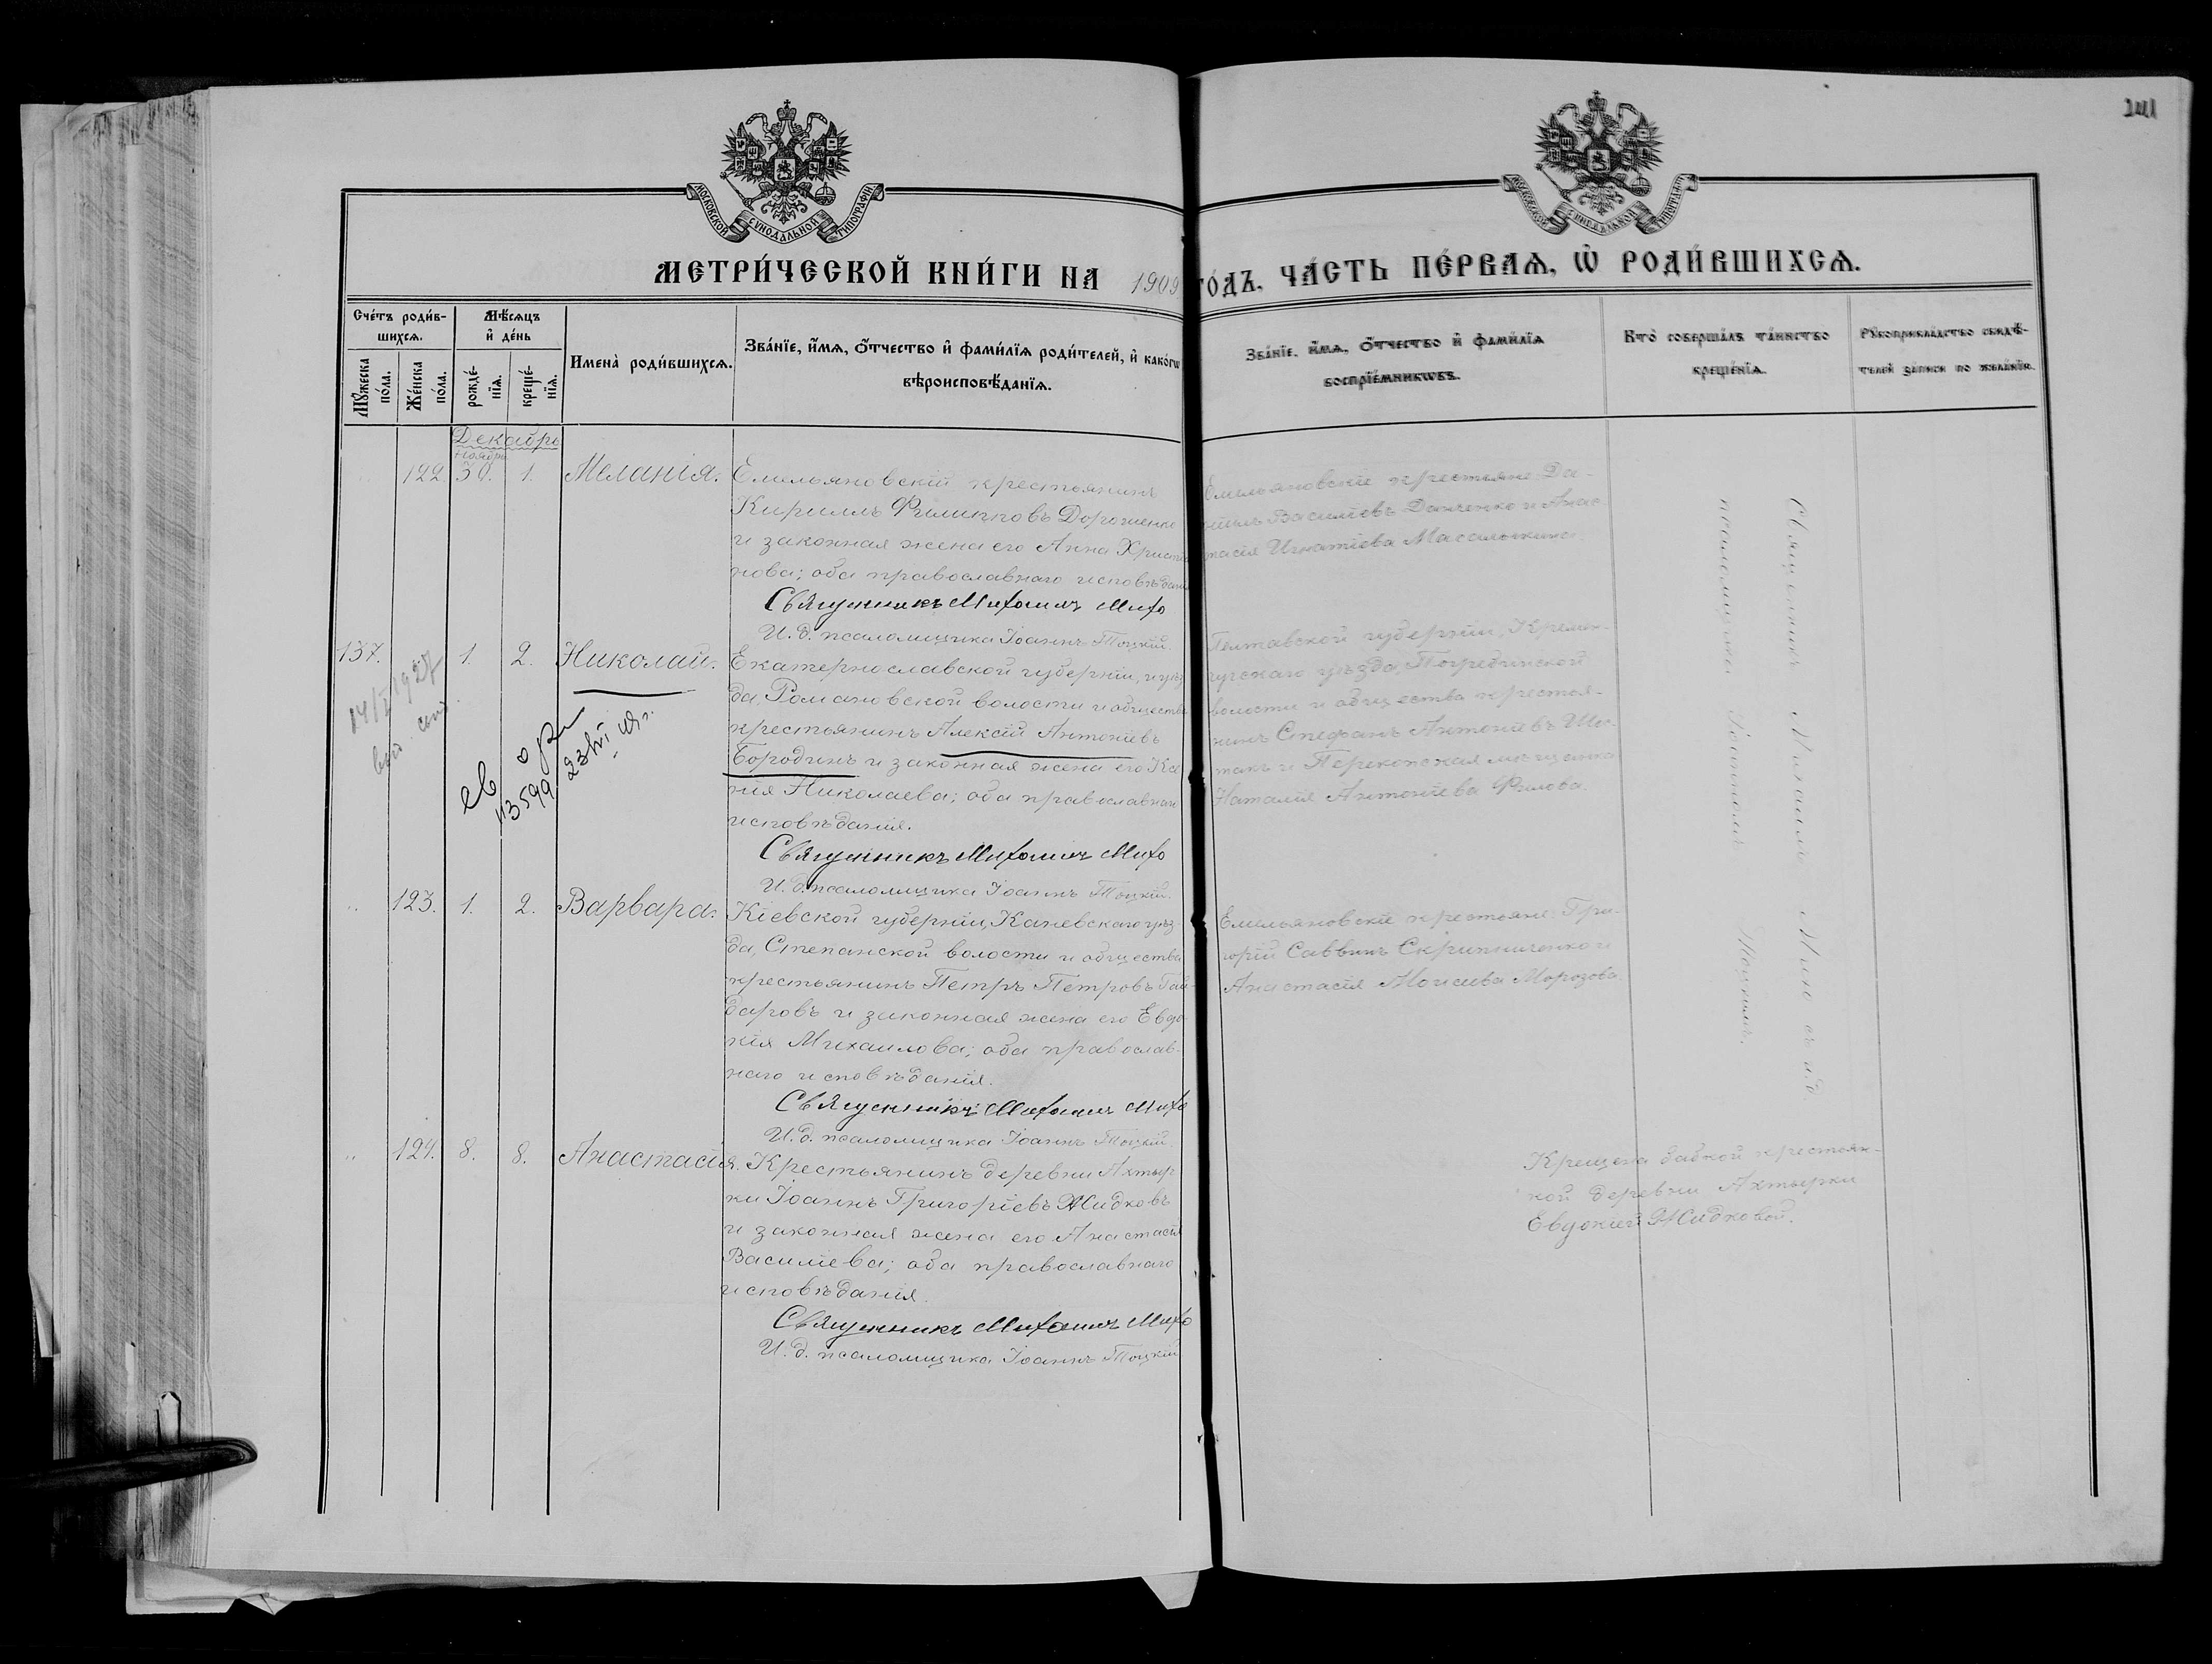 241
МОСКОВСКОЙ СѴНОДАЛЬНОЙ ТИПОГРАФІИ
МОСКОВСКОЙ СѴНОДАЛЬНОЙ ТИПОГРАФІИ
МЕТРИ́ЧЕСКОЙ КНИ́ГИ НА 1909 ГО́ДЪ, ЧА́СТЬ ПЕ́РВАѦ, Ѽ РОДИ́ВШИХСѦ.
Сче́тъ роди́в-
шихсѧ.
Мꙋ́жеска по́ла.
Же́нска по́ла.
Мѣ́сѧцъ
и҆ де́нь
рожде́-
нїѧ.
креще́-
нїѧ.
Имена̀ роди́вшихсѧ.
Зва́нїе, и҆́мѧ, ѻ҆́тчество и҆ фами́лїѧ роди́телей, и҆ како́гѡ
вѣроисповѣ́данїѧ.
Зва́нїе, и҆́мѧ, ѻ҆́тчество и҆ фами́лїѧ
воспрїе́мникѡвъ.
Кто̀ соверша́лъ та́инство
креще́нїѧ.
Рꙋкоприкла́дство свидѣ́-
телей за́писи по жела́нїю.
Декабрь
Ноября
122. 30. 1. Меланія.
Емильяновскій крестьянинъ
Кириллъ Филипповъ Дорошенко
и законная жена его Анна Христи
нова; оба православнаго исповѣдан
Священникъ Михаилъ Михо
И. д. псаломщика Іоаннъ Тоцкій.
Емильяновскіе крестьяне: Да-
ніилъ Василіевъ Данченко и Анас-
тасія Игнатіева Масалыкина.
137. 1. 2. Николай.
Екатеринославской губерніи, и уѣз
да, Романовской волости и общества
крестьянинъ Алексій Антоніевъ
Бородинъ и законная жена его Ксе
нія Николаева; оба православнаго
исповѣданія.
Священникъ Михаилъ Михо
И. д. псаломщика Іоаннъ Тоцкій.
Полтавской губерніи, Кремен-
чугскаго уѣзда, Погребинской
волости и общества крестья-
нинъ Стефанъ Антоніевъ
и Перекопская мѣщанка
Наталія Антоніева Филова.
14/I 1927
113599
123. 1. 2. Варвара.
Кіевской губерніи, Каневскаго уѣз-
да, Степанской волости и общества
крестьянинъ Петръ Петровъ Гай-
даровъ и законная жена его Евдо-
кія Михаилова; оба православ-
наго исповѣданія.
Священникъ Михаилъ Михо
И. д. псаломщика Іоаннъ Тоцкій.
Емильяновскіе крестьяне: Гри-
горій Саввинъ Скрипниченко и
Анастасія Моисеева Морозова.
Священникъ Михаилъ Михо съ и. д.
псаломщика Іоанномъ Тоцкимъ.
124. 8. 8. Анастасія.
Крестьянинъ деревни Ахтыр
ки Іоаннъ Григоріевъ Жидковъ
и законная жена его Анастасія
Василіева; оба православнаго
исповѣданія.
Священникъ Михаилъ Михо
И. д. псаломщика Іоаннъ Тоцкій
Крещена бабкой крестьян-
кой деревни Ахтырки
Евдокией Жидковой.